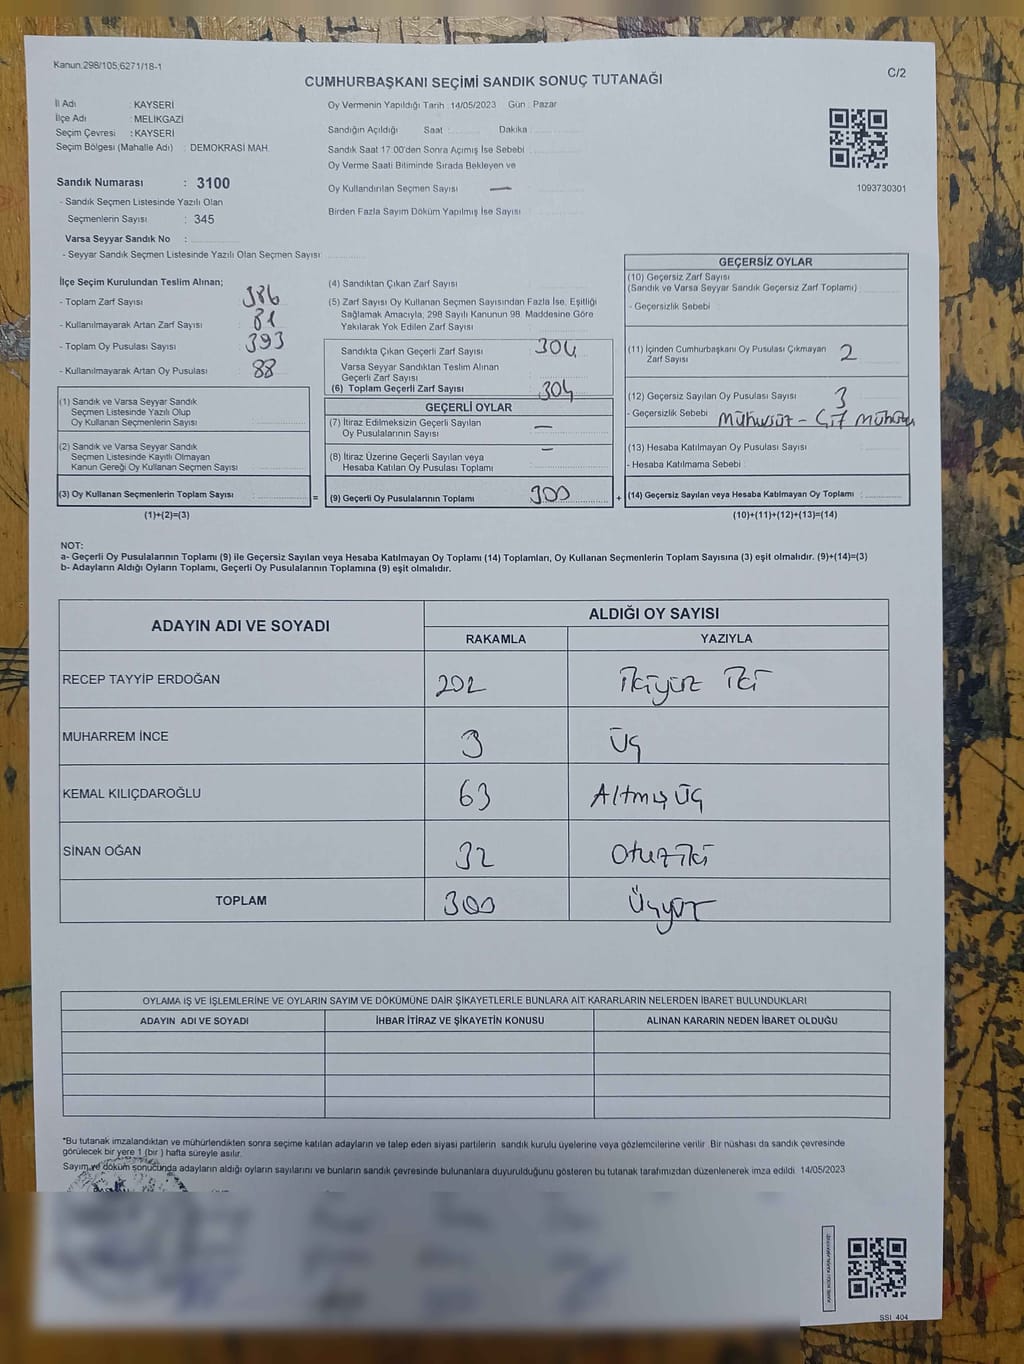 Kanun:298/105,6271/18-1
C/2
CUMHURBAŞKANI SEÇİMİ SANDIK SONUÇ TUTANAĞI
İl Adı : KAYSERİ
İlçe Adı : MELİKGAZİ
Seçim Çevresi : KAYSERİ
Seçim Bölgesi (Mahalle Adı) : DEMOKRASİ MAH.
Sandık Numarası : 3100
- Sandık Seçmen Listesinde Yazılı Olan
Seçmenlerin Sayısı : 345
Varsa Seyyar Sandık No :
- Seyyar Sandık Seçmen Listesinde Yazılı Olan Seçmen Sayısı :
Oy Vermenin Yapıldığı Tarih : 14/05/2023 Gün : Pazar
Sandığın Açıldığı Saat : Dakika :
Sandık Saat 17:00'den Sonra Açımış İse Sebebi :
Oy Verme Saati Bitiminde Sırada Bekleyen ve
Oy Kullandırılan Seçmen Sayısı : —
Birden Fazla Sayım Döküm Yapılmış İse Sayısı :
1093730301
İlçe Seçim Kurulundan Teslim Alınan;
- Toplam Zarf Sayısı : 386
- Kullanılmayarak Artan Zarf Sayısı : 81
- Toplam Oy Pusulası Sayısı : 393
- Kullanılmayarak Artan Oy Pusulası : 88
(1) Sandık ve Varsa Seyyar Sandık
Seçmen Listesinde Yazılı Olup
Oy Kullanan Seçmenlerin Sayısı :
(2) Sandık ve Varsa Seyyar Sandık
Seçmen Listesinde Kayıtlı Olmayan
Kanun Gereği Oy Kullanan Seçmen Sayısı :
(3) Oy Kullanan Seçmenlerin Toplam Sayısı : =
(1)+(2)=(3)
(4) Sandıktan Çıkan Zarf Sayısı :
(5) Zarf Sayısı Oy Kullanan Seçmen Sayısından Fazla İse, Eşitliği
Sağlamak Amacıyla; 298 Sayılı Kanunun 98. Maddesine Göre
Yakılarak Yok Edilen Zarf Sayısı :
Sandıkta Çıkan Geçerli Zarf Sayısı : 304
Varsa Seyyar Sandıktan Teslim Alınan
Geçerli Zarf Sayısı :
(6) Toplam Geçerli Zarf Sayısı : 304
GEÇERLİ OYLAR
(7) İtiraz Edilmeksizin Geçerli Sayılan
Oy Pusulalarının Sayısı : —
(8) İtiraz Üzerine Geçerli Sayılan veya
Hesaba Katılan Oy Pusulası Toplamı : —
(9) Geçerli Oy Pusulalarının Toplamı : 300 +
GEÇERSİZ OYLAR
(10) Geçersiz Zarf Sayısı
(Sandık ve Varsa Seyyar Sandık Geçersiz Zarf Toplamı) :
- Geçersizlik Sebebi :
(11) İçinden Cumhurbaşkanı Oy Pusulası Çıkmayan
Zarf Sayısı : 2
(12) Geçersiz Sayılan Oy Pusulası Sayısı : 3
- Geçersizlik Sebebi : Mühürsüz - Çift Mühürlü
(13) Hesaba Katılmayan Oy Pusulası Sayısı :
- Hesaba Katılmama Sebebi :
(14) Geçersiz Sayılan veya Hesaba Katılmayan Oy Toplamı :
(10)+(11)+(12)+(13)=(14)
NOT:
a- Geçerli Oy Pusulalarının Toplamı (9) ile Geçersiz Sayılan veya Hesaba Katılmayan Oy Toplamı (14) Toplamları, Oy Kullanan Seçmenlerin Toplam Sayısına (3) eşit olmalıdır. (9)+(14)=(3)
b- Adayların Aldığı Oyların Toplamı, Geçerli Oy Pusulalarının Toplamına (9) eşit olmalıdır.
ADAYIN ADI VE SOYADI
ALDIĞI OY SAYISI
RAKAMLA YAZIYLA
RECEP TAYYİP ERDOĞAN 202 İkiyüz iki
MUHARREM İNCE 3 Üç
KEMAL KILIÇDAROĞLU 63 Altmış üç
SİNAN OĞAN 32 Otuz iki
TOPLAM 300 Üçyüz
OYLAMA İŞ VE İŞLEMLERİNE VE OYLARIN SAYIM VE DÖKÜMÜNE DAİR ŞİKAYETLERLE BUNLARA AİT KARARLARIN NELERDEN İBARET BULUNDUKLARI
ADAYIN ADI VE SOYADI İHBAR İTİRAZ VE ŞİKAYETİN KONUSU ALINAN KARARIN NEDEN İBARET OLDUĞU
*Bu tutanak imzalandıktan ve mühürlendikten sonra seçime katılan adayların ve talep eden siyasi partilerin sandık kurulu üyelerine veya gözlemcilerine verilir. Bir nüshası da sandık çevresinde
görülecek bir yere 1 (bir ) hafta süreyle asılır.
Sayım ve döküm sonucunda adayların aldığı oyların sayılarını ve bunların sandık çevresinde bulunanlara duyurulduğunu gösteren bu tutanak tarafımızdan düzenlenerek imza edildi. 14/05/2023
SSI_404